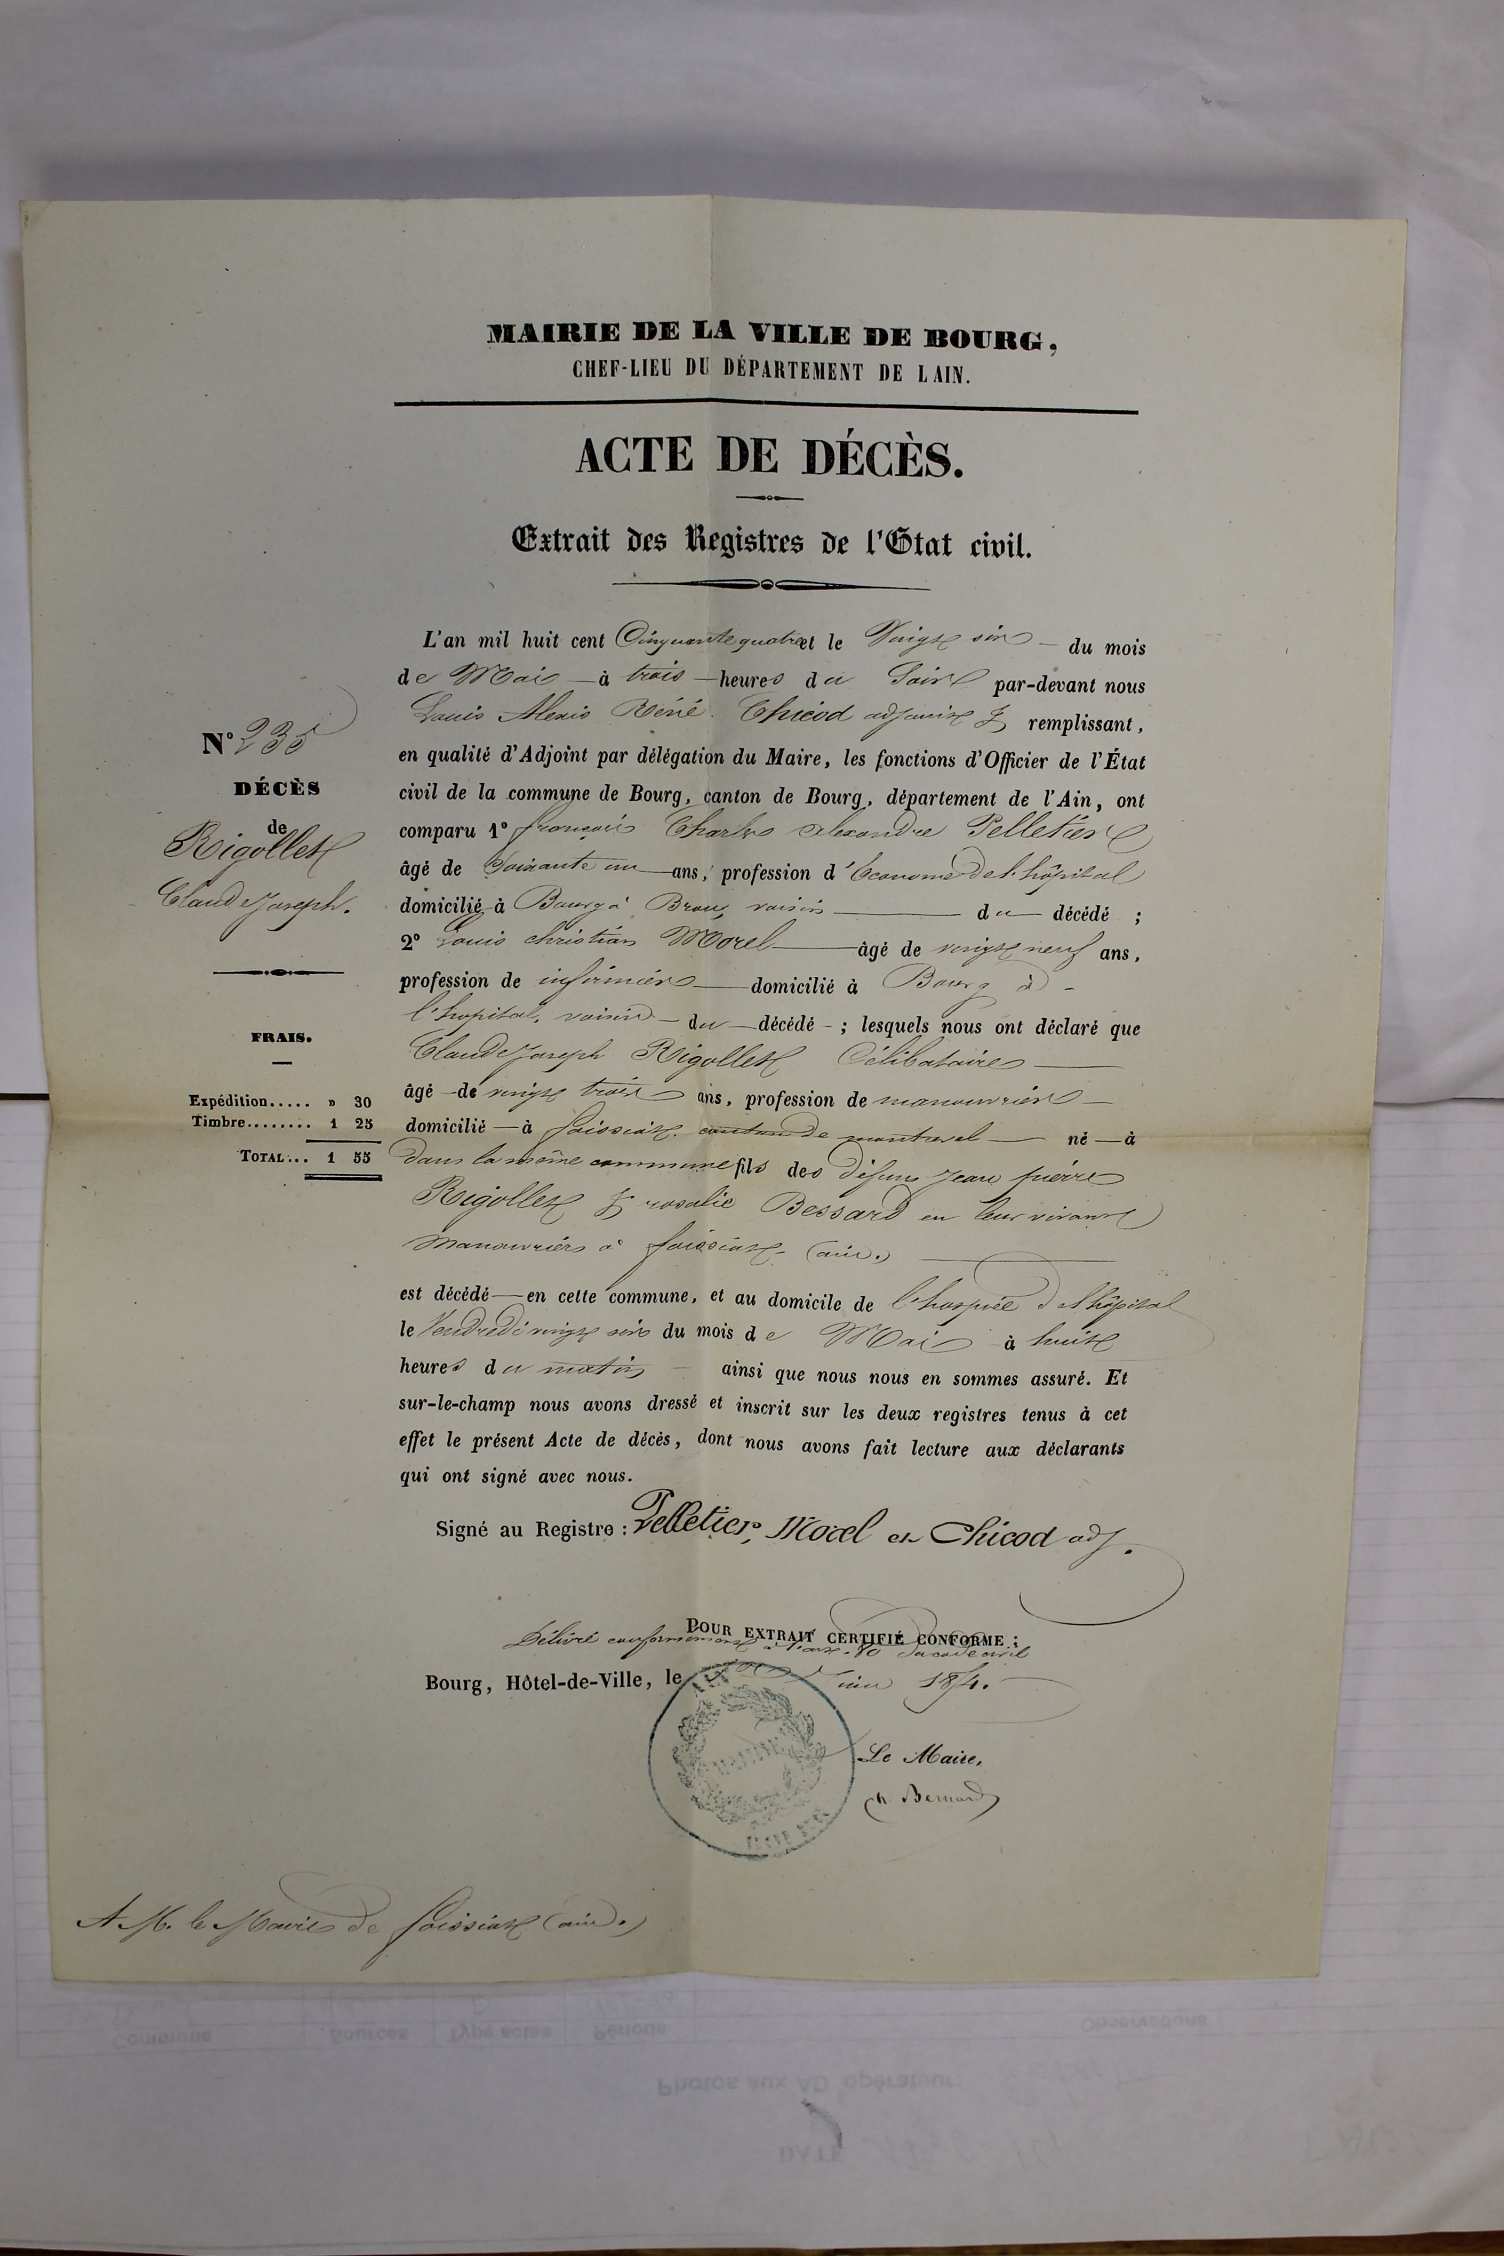 MAIRIE DE LA VILLE DE BOURG,
CHEF-LIEU DU DÉPARTEMENT DE L AIN.
ACTE DE DÉCÈS.
Extrait des Registres de l'État civil.
N° 235
DÉCÈS
de
Rigollet
Claude Joseph.
FRAIS.
Expédition..... » 30
Timbre........ 1 25
TOTAL... 1 55
L'an mil huit cent Cinquante quatre et le Vingt six du mois
de Mai à trois heures du Soir par-devant nous
Louis Alexis Réné Chicod adjoint remplissant,
en qualité d'Adjoint par délégation du Maire, les fonctions d'Officier de l'État
civil de la commune de Bourg, canton de Bourg, département de l'Ain, ont
comparu 1° françois Charles Alexandre Pelletier
âgé de Soixante un ans, profession d'Econome de l'hôpital
domicilié à Bourg à Brou, voisin du décédé ;
2° Louis Christian Morel âgé de vingt neuf ans,
profession de infirmier domicilié à Bourg à
l'hopital, voisin du décédé ; lesquels nous ont déclaré que
Claude Joseph Rigollet Célibataire
âgé de vingt trois ans, profession de manouvrier
domicilié à foissiat canton de montrevel né à
dans la même commune fils des défunts Jean pierre
Rigollet & rosalie Bessard en leur vivant
manouvriers à foissiat (ain.)
est décédé en cette commune, et au domicile de l'hospice de l'hôpital
le Vendredi vingt six du mois de Mai à huit
heures du matin ainsi que nous nous en sommes assuré. Et
sur-le-champ nous avons dressé et inscrit sur les deux registres tenus à cet
effet le présent Acte de décès, dont nous avons fait lecture aux déclarants
qui ont signé avec nous.
Signé au Registre : Pelletier, Morel et Chicod adj.
POUR EXTRAIT CERTIFIÉ CONFORME :
Délivré conformément à l'art. 80 du code civil
Bourg, Hôtel-de-Ville, le Juin 1854.
Le Maire,
Bernard
A M. le Maire de foissiat (ain.)
Commune Sources Type actes Période Observations
Photos aux AD opérateur
DATE